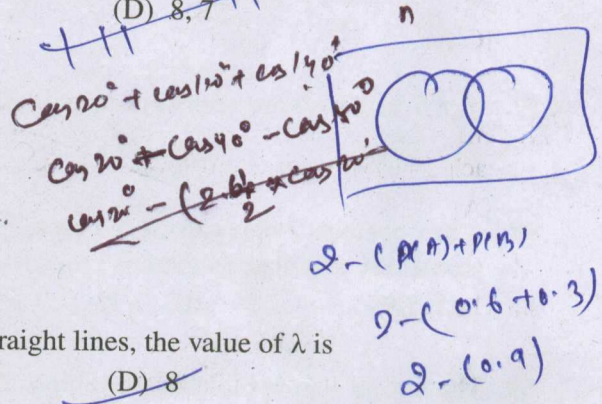 (D) 8, 7
n
Cos 20° + cos 120° + cos 140°
Cos 20° + Cos 40° - Cos 80°
cos 20° - (
2 - (P(A) + P(B)
2 - (0.6 + 0.3)
2 - (0.9)
raight lines, the value of λ is
(D) 8